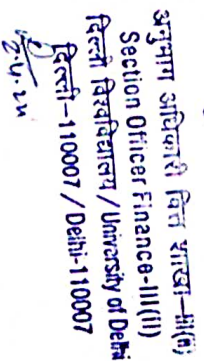 अनुभाग अधिकारी वित्त शाखा-III(II)
Section Officer Finance-III(II)
दिल्ली विश्वविद्यालय / University of Delhi
दिल्ली-110007 / Delhi-110007